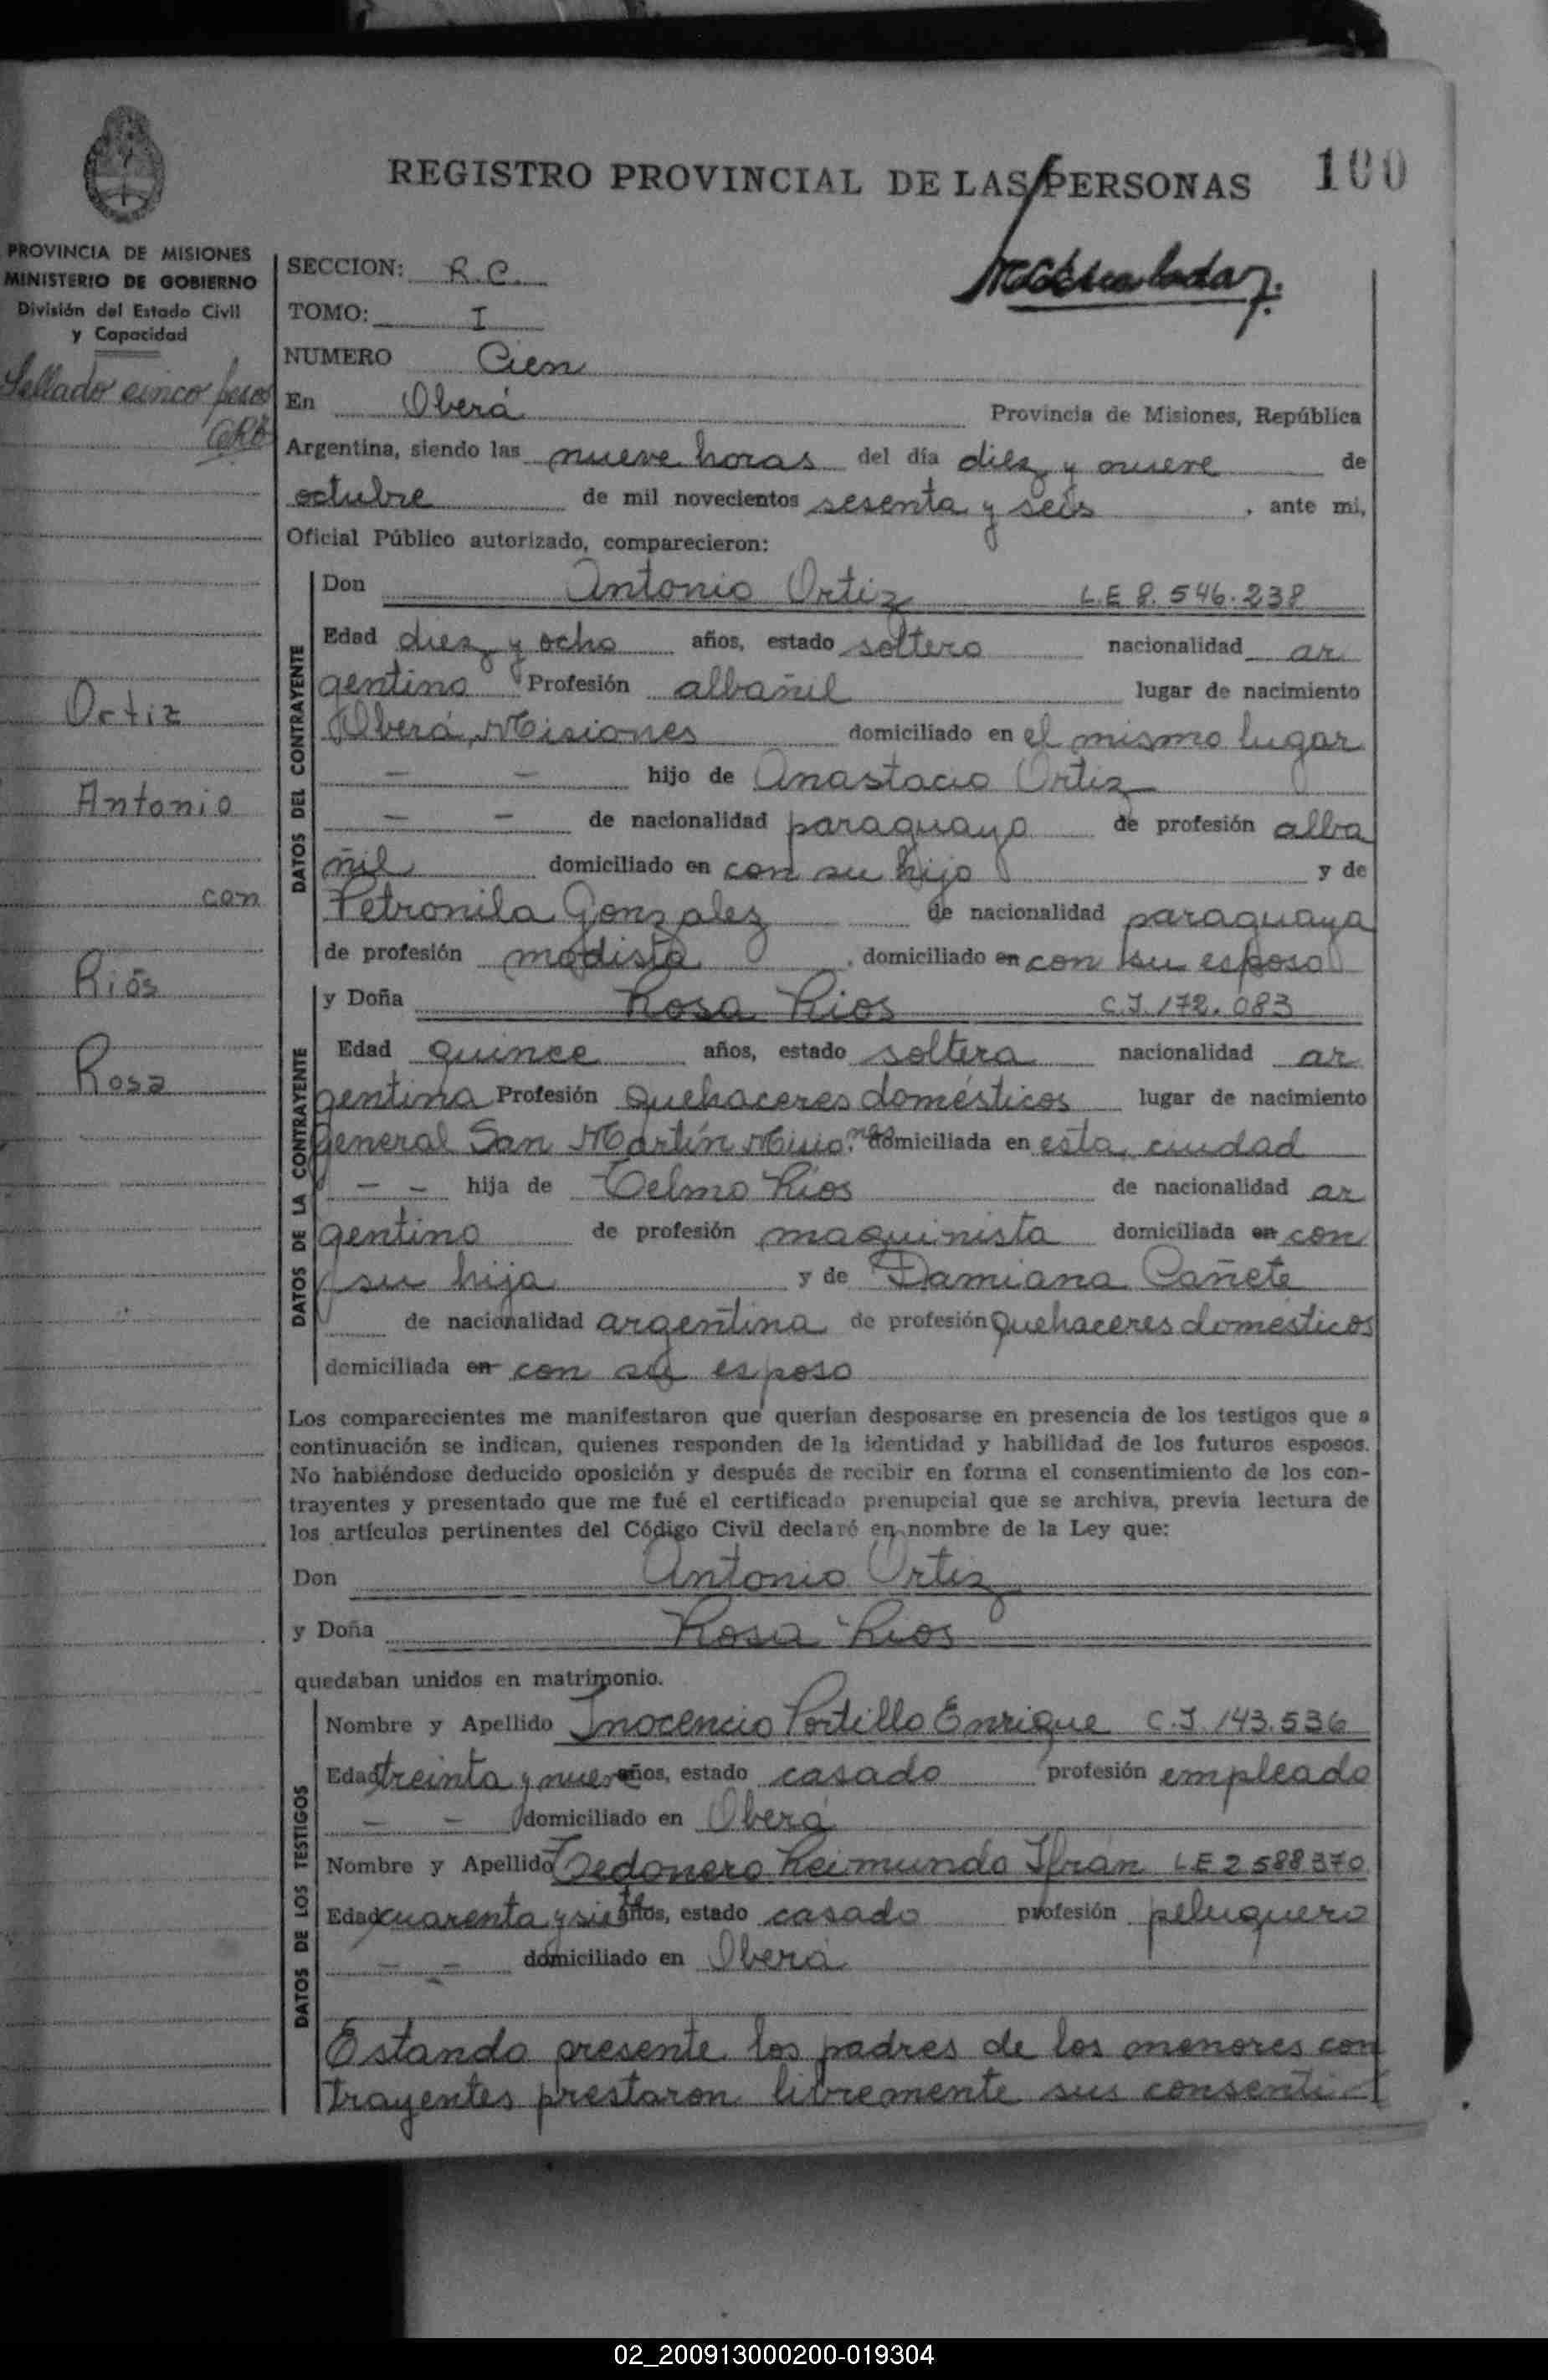 REGISTRO PROVINCIAL DE LAS PERSONAS
100
PROVINCIA DE MISIONES
MINISTERIO DE GOBIERNO
División del Estado Civil
y Capacidad
Sellado cinco pesos
Ortiz
Antonio
con
Riós
Rosa
SECCION: R.C.
TOMO: I
NUMERO Cien
En Oberá Provincia de Misiones, República
Argentina, siendo las nueve horas del día diez y nueve de
octubre de mil novecientos sesenta y seis, ante mi,
Oficial Público autorizado, comparecieron:
DATOS DEL CONTRAYENTE
Don Antonio Ortiz L.E 8.546.238
Edad diez y ocho años, estado soltero nacionalidad ar
gentino Profesión albañil lugar de nacimiento
Oberá, Misiones domiciliado en el mismo lugar
— — hijo de Anastacio Ortiz
— — de nacionalidad paraguayo de profesión alba
ñil domiciliado en con su hijo y de
Petronila Gonzalez de nacionalidad paraguaya
de profesión modista, domiciliado en con su esposo
DATOS DE LA CONTRAYENTE
y Doña Rosa Rios C.I. 172.083
Edad quince años, estado soltera nacionalidad ar
gentina Profesión quehaceres domésticos lugar de nacimiento
General San Martín Misiones domiciliada en esta ciudad
— — hija de Telmo Rios de nacionalidad ar
gentino de profesión maquinista domiciliada en con
su hija y de Damiana Cañete
de nacionalidad argentina de profesión quehaceres domésticos
domiciliada en con su esposo
Los comparecientes me manifestaron que querían desposarse en presencia de los testigos que a
continuación se indican, quienes responden de la identidad y habilidad de los futuros esposos.
No habiéndose deducido oposición y después de recibir en forma el consentimiento de los con-
trayentes y presentado que me fué el certificado prenupcial que se archiva, previa lectura de
los artículos pertinentes del Código Civil declaré en nombre de la Ley que:
Don Antonio Ortiz
y Doña Rosa Rios
quedaban unidos en matrimonio.
DATOS DE LOS TESTIGOS
Nombre y Apellido Inocencio Portillo Enrique C.I. 143.536
Edad treinta y nueve años, estado casado profesión empleado
— — domiciliado en Oberá
Nombre y Apellido Reimundo Ifrán LE 2588370
Edad cuarenta y siete años, estado casado profesión peluquero
— — domiciliado en Oberá
Estando presente los padres de los menores con
trayentes prestaron libremente sus consenti
02_200913000200-019304